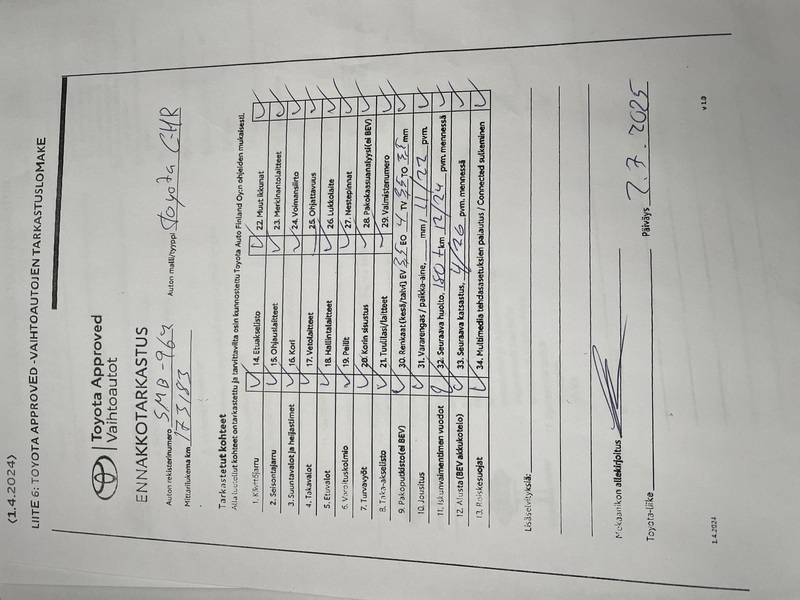 (1.4.2024)
LIITE 6: TOYOTA APPROVED -VAIHTOAUTOJEN TARKASTUSLOMAKE
Toyota Approved
Vaihtoautot
ENNAKKOTARKASTUS
Auton rekisterinumero SMB-967 Auton malli/tyyppi Toyota C-HR
Mittarilukema km 173183
Tarkastetut kohteet
Alla luetellut kohteet on tarkastettu ja tarvittavilta osin kunnostettu Toyota Auto Finland Oy:n ohjeiden mukaisesti.
1. Käsijarru 14. Etuakselisto 22. Muut ikkunat
2. Seisontajarru 15. Ohjauslaitteet 23. Merkinantolaitteet
3. Suuntavalot ja heijastimet 16. Kori 24. Voimansiirto
4. Takavalot 17. Vetolaitteet 25. Ohjattavuus
5. Etuvalot 18. Hallintalaitteet 26. Lukkolaite
6. Varoituskolmio 19. Peilit 27. Nestepinnat
7. Turvavyöt 20. Korin sisustus 28. Pakokaasuanalyysi(ei BEV)
8. Taka-akselisto 21. Tuulilasi/laitteet 29. Valmistenumero
9. Pakoputkisto(ei BEV) 30. Renkaat (kesä/talvi) EV EO 4 TV TO mm
10. Jousitus 31. Vararengas / paikka-aine, mm 11/22 pvm.
11. Iskunvaimentimen vuodot 32. Seuraava huolto, km 12/24 pvm. mennessä
12. Alusta (BEV akkukotelo) 33. Seuraava katsastus, 4/26 pvm. mennessä
13. Roiskesuojat 34. Multimedia tehdasasetuksien palautus / Connected sulkeminen
Lisäselvityksiä:
Mekaanikon allekirjoitus
Toyota-liike Päiväys 2.7.2025
1.4.2024 v 1.0